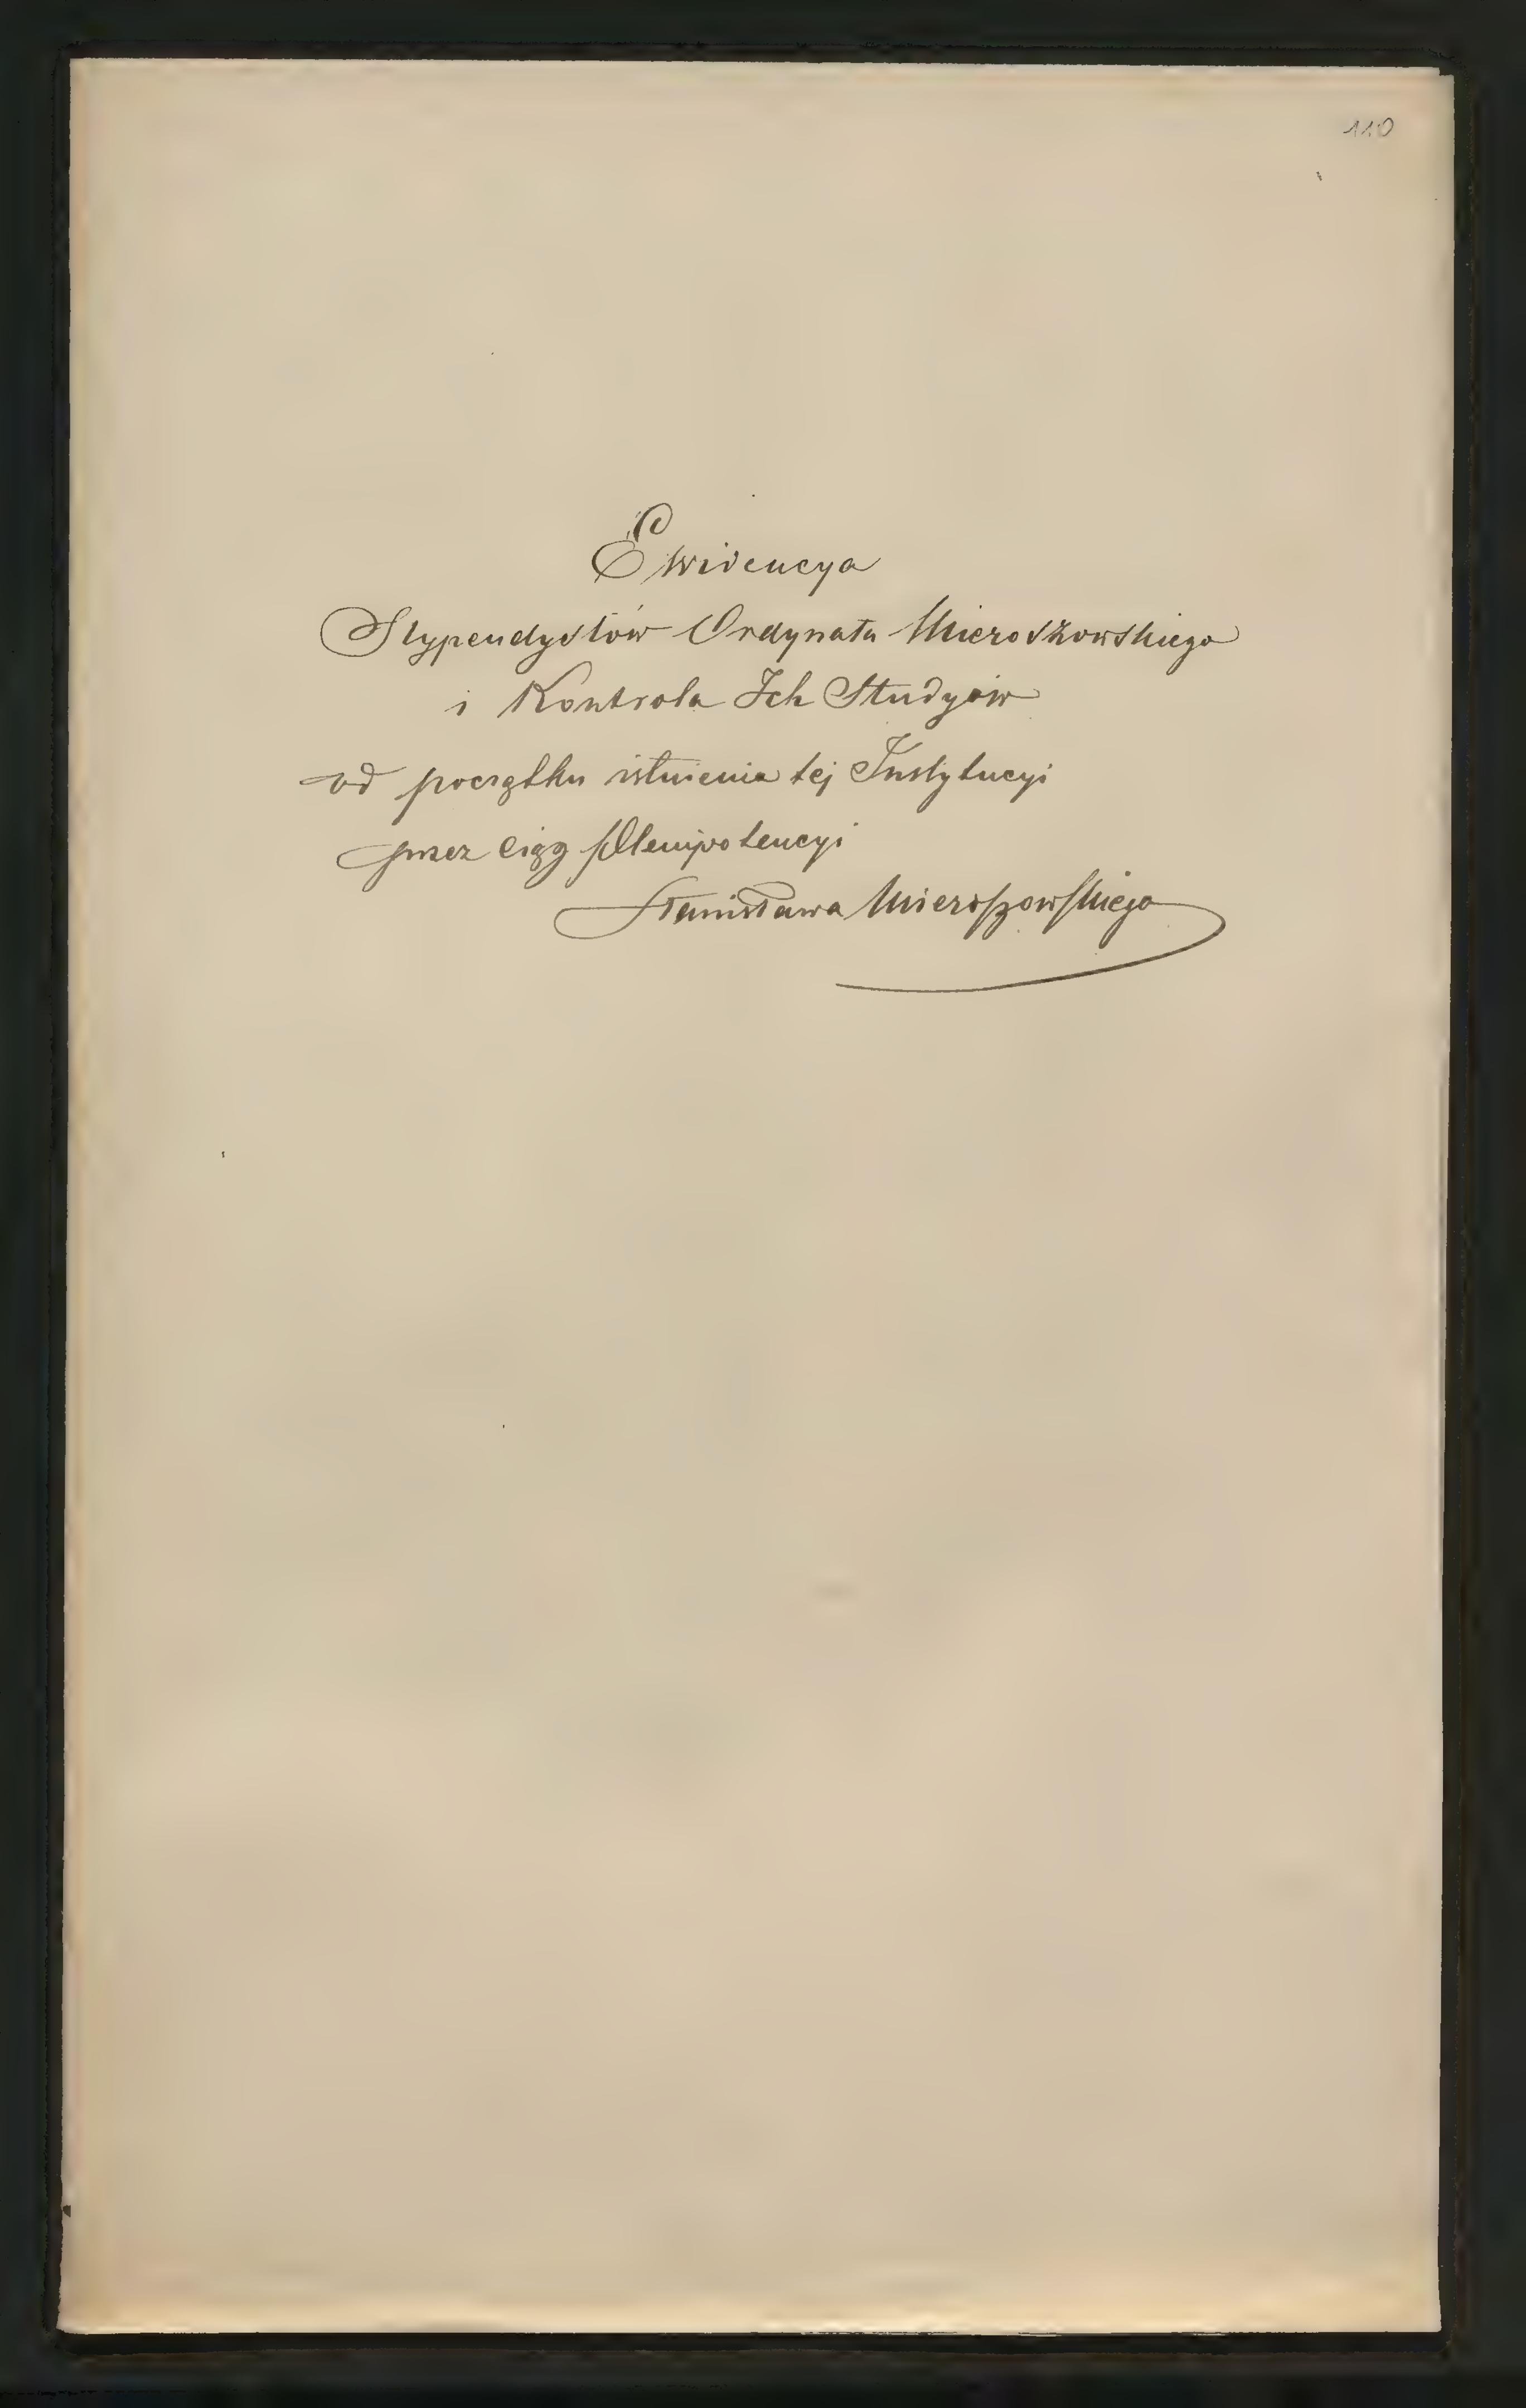 110
Ewidencya
Stypendystów Ordynata Mieroszowskiego
i Kontrola Ich Studyów
od początku istnienia tej Instytucyi
przez ciąg Plenipotencyi
Stanisława Mieroszowskiego